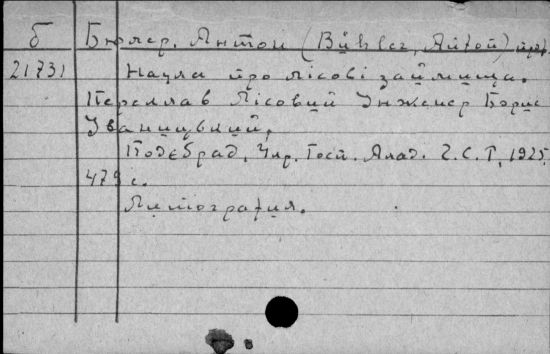 б Бюлер. Антон (Bühler, Anton) проф.
21731 Наука про лісові займища.
Переклав Лісовий Інженер Борис
Іваницький.
Подєбрад, Укр. Госп. Акад. Č.S.R, 1925,
479 с.
Літографія.